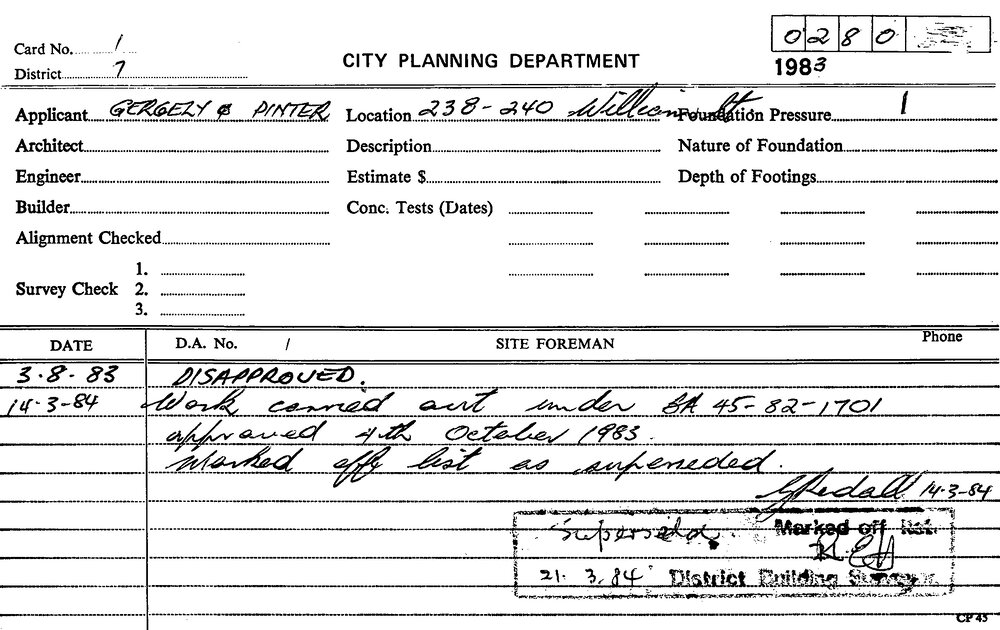 0280
Card No. 1
CITY PLANNING DEPARTMENT
1983
District 7
Applicant GERGELY & PINTER Location 238-240 William St Foundation Pressure
Architect Description Nature of Foundation
Engineer Estimate $ Depth of Footings
Builder Conc. Tests (Dates)
Alignment Checked
1.
Survey Check 2.
3.
DATE D.A. No. / SITE FOREMAN Phone
3.8.83 DISAPPROVED.
14.3.84 Work carried out under BA 45-82-1701
approved 4th October 1983.
Marked off list as superseded.
14.3.84
Marked off list.
21. 3. 84 District Building Surveyor.
CP 45